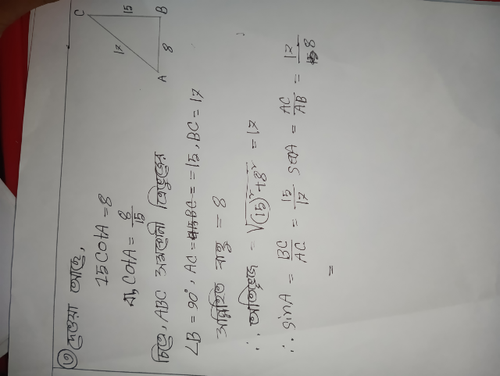 ③ দেওয়া আছে,
15 cotA = 8
বা, cotA = 8/15
চিত্রে, ABC সমকোনী ত্রিভুজের
∠B = 90°, AC = BC = 15, BC = 17
সন্নিহিত বাহু = 8
∴ অতিভুজ = √(15)² + 8² = 17
∴ sinA = BC/AC = 15/17 secA = AC/AB = 17/8
=
C 15 B
17 8
A